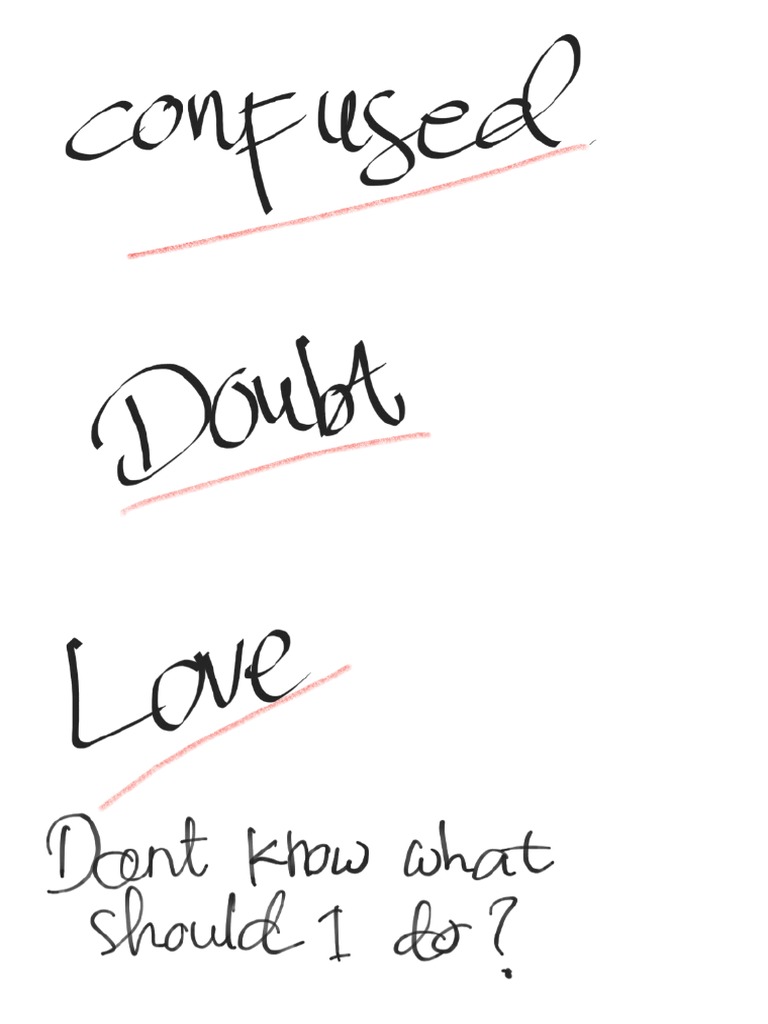 confused
Doubt
Love
Doont know what
should I do?